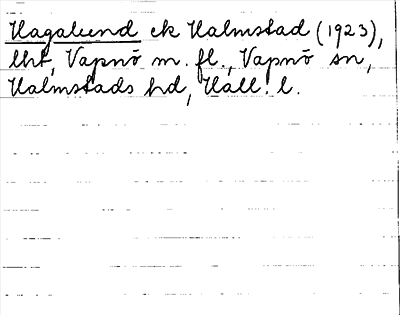 Hagalund ek Halmstad (1923),
lht, Vapnö m. fl., Vapnö sn,
Halmstads hd, Hall. l.